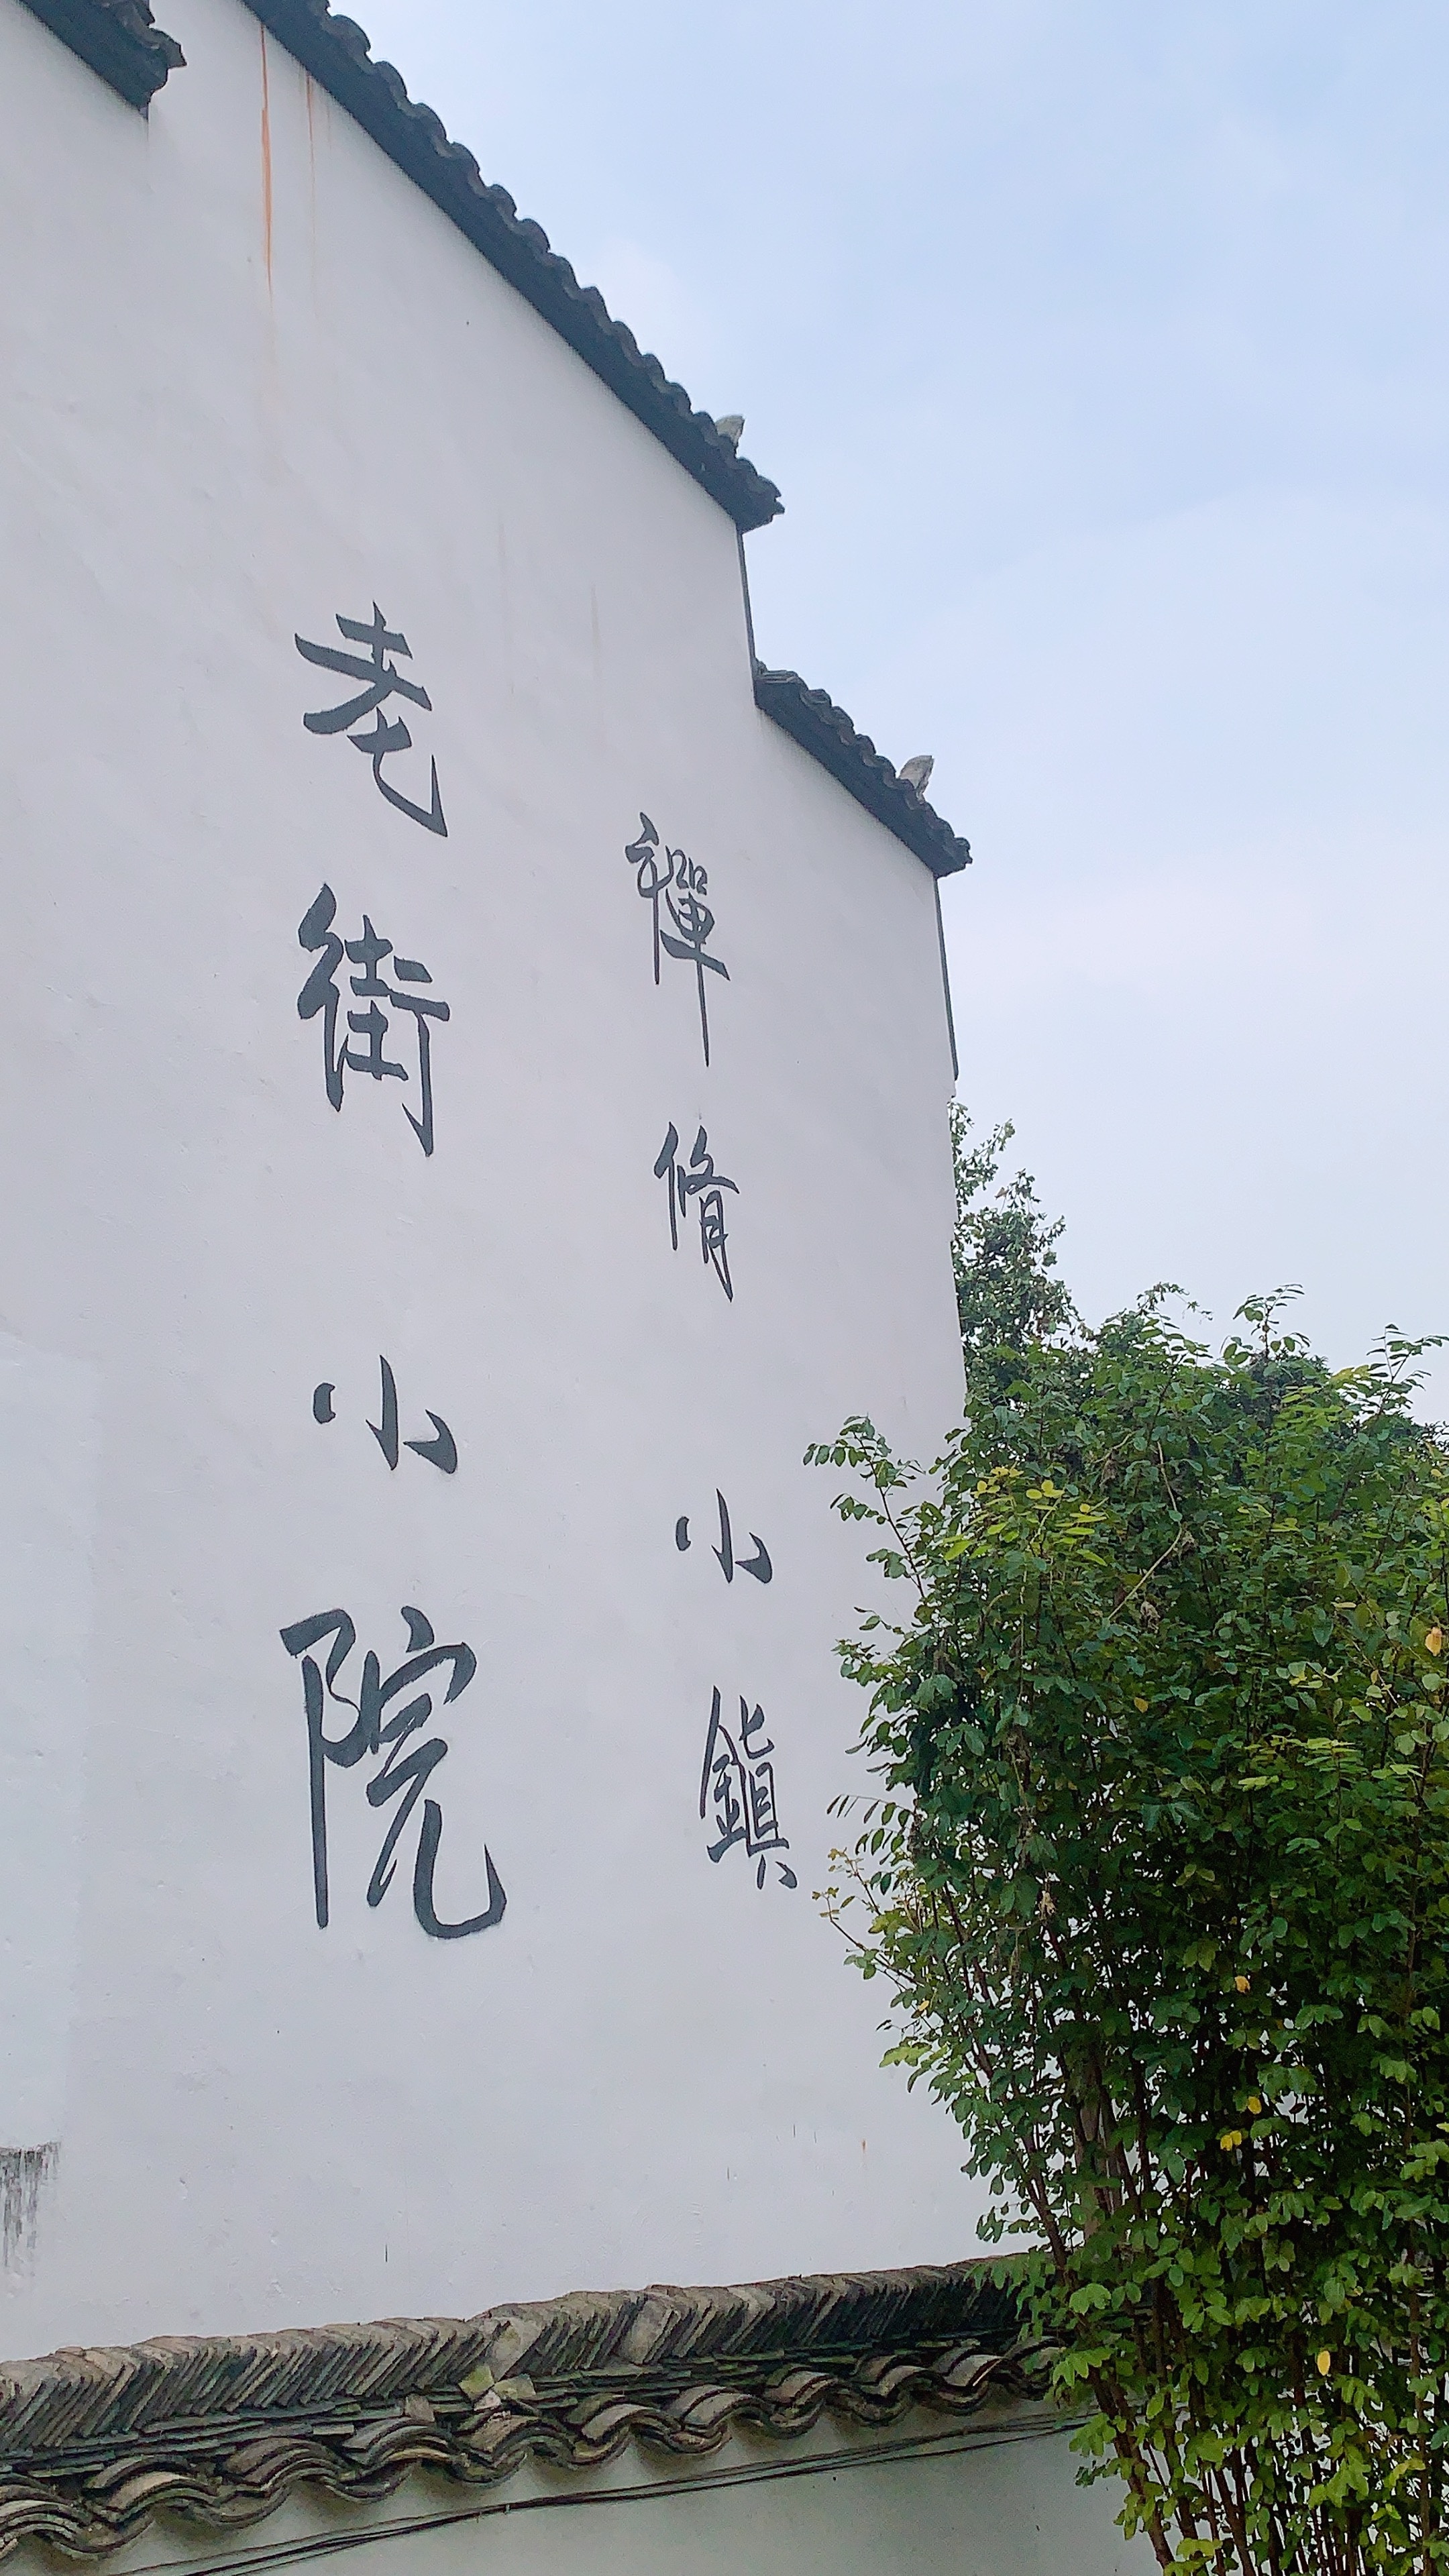 禪脩小鎮
老街小院